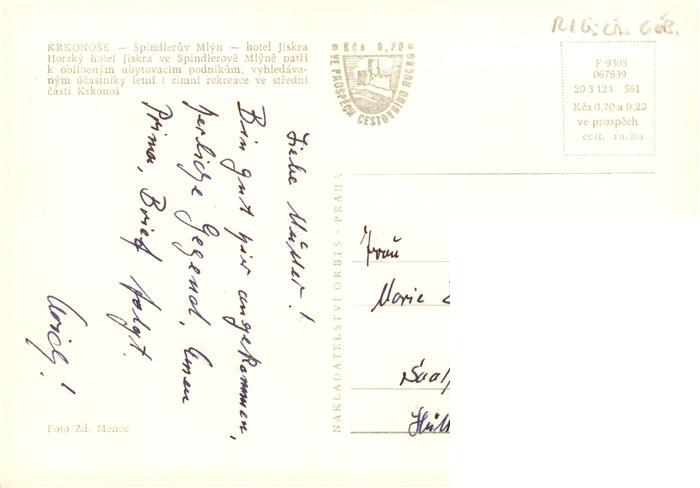 KRKONOŠE — Špindlerův Mlýn — hotel Jiskra
Horský hotel Jiskra ve Špindlerově Mlýně patří
k oblíbeným ubytovacím podnikům, vyhledáva-
ným účastníky letní i zimní rekreace ve střední
části Krkonoš
Kčs 0,20
VE PROSPĚCH CESTOVNÍHO RUCHU
F 9303
067539
20 3 123 561
Kčs 0,70 a 0,20
ve prospěch
cest. ruchu
Liebe Mutter!
Bin gut hier angekommen,
herliche Gegend,
Prima, Brief folgt.
NAKLADATELSTVÍ ORBIS - PRAHA
Frau
Marie
Saal
Foto Zd. Menec